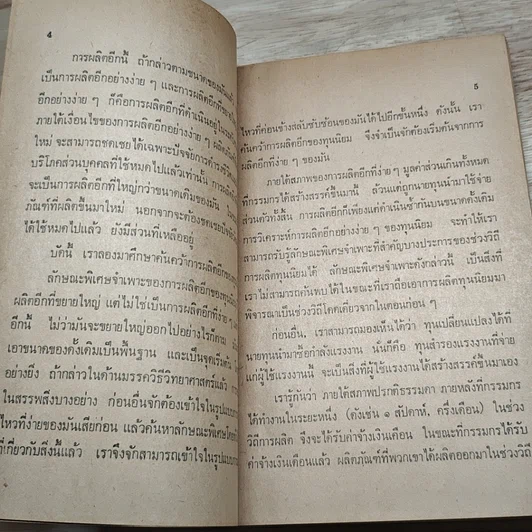 4
การผลิตอีกนี้ ถ้ากล่าวตามขนาดของมันแล้ว
เป็นการผลิตอีกอย่างง่าย ๆ และการผลิตอีกที่ขยาย
อีกอย่างง่าย ๆ ก็คือการผลิตอีกที่ดำเนินอยู่ใน
ภายใต้เงื่อนไขของการผลิตอีกอย่างง่าย ๆ
ใหม่ จะสามารถชดเชยได้เฉพาะปัจจัยการดำรงชีวิต
บริโภคส่วนบุคคลที่ใช้หมดไปแล้วเท่านั้น การผลิต
จะเป็นการผลิตอีกที่ใหญ่กว่าขนาดเดิมของมัน
ภัณฑ์ที่ผลิตขึ้นมาใหม่ นอกจากจะต้องชดเชย
ได้ใช้หมดไปแล้ว ยังมีส่วนที่เหลืออยู่
บัดนี้ เราลองมาศึกษาค้นคว้าการผลิตอีกของ
ลักษณะพิเศษจำเพาะของการผลิตอีกของทุนนิยม
ผลิตอีกที่ขยายใหญ่ แต่ไม่ใช่เป็นการผลิตอีก
อีกนี้ ไม่ว่ามันจะขยายใหญ่ออกไปอย่างไรก็ตาม
เอาขนาดของดั้งเดิมเป็นพื้นฐาน และเป็นจุดเริ่มต้น
อย่างยิ่ง ถ้ากล่าวในด้านมรรควิธีวิทยาศาสตร์แล้ว
ในสรรพสิ่งบางอย่าง ก่อนอื่นจักต้องเข้าใจในรูปแบบ
ไหวที่ง่ายของมันเสียก่อน แล้วค้นหาลักษณะพิเศษ
ที่เกี่ยวกับสิ่งนี้แล้ว เราจึงจักสามารถเข้าใจในรูปแบบ
5
ไหวที่ค่อนข้างสลับซับซ้อนของมันได้ไปอีกขั้นหนึ่ง ดังนั้น เรา
ค้นคว้าการผลิตอีกของทุนนิยม จึงจำเป็นจักต้องเริ่มต้นจากการ
ผลิตอีกที่ง่าย ๆ ของมัน
ภายใต้สภาพของการผลิตอีกที่ง่าย ๆ มูลค่าส่วนเกินทั้งหมด
ที่กรรมกรได้สร้างสรรค์ขึ้นมานี้ ล้วนแต่ถูกนายทุนนำมาใช้จ่าย
ส่วนตัวทั้งสิ้น การผลิตอีกก็เพียงแต่ดำเนินซ้ำกันบนขนาดดั้งเดิม
การวิเคราะห์การผลิตอีกอย่างง่าย ๆ ของทุนนิยม จะทำให้เรา
สามารถรับรู้ลักษณะพิเศษจำเพาะที่สำคัญบางประการของช่วงวิถี
การผลิตทุนนิยมได้ ลักษณะพิเศษจำเพาะดังกล่าวนี้ เป็นสิ่งที่
เราไม่สามารถค้นพบได้ในขณะที่เราถือเอาการผลิตทุนนิยมมา
พิจารณาเป็นช่วงวิถีโดดเดี่ยวจากในตอนก่อน ๆ
ก่อนอื่น, เราสามารถมองเห็นได้ว่า ทุนเปลี่ยนแปลงได้ที่
นายทุนนำมาซื้อกำลังแรงงาน นั่นก็คือ ทุนสำรองแรงงานที่จ่าย
แก่ผู้ใช้แรงงานนี้ จะเป็นสิ่งที่ผู้ใช้แรงงานได้สร้างสรรค์ขึ้นมาเอง
เรารู้กันว่า ภายใต้สภาพปรกติธรรมดา ภายหลังที่กรรมกร
ได้ทำงานในระยะหนึ่ง (ดังเช่น ๑ สัปดาห์, ครึ่งเดือน) ในช่วง
วิถีการผลิต จึงจะได้รับค่าจ้างเงินเดือน ในขณะที่กรรมกรได้รับ
ค่าจ้างเงินเดือนแล้ว ผลิตภัณฑ์ที่พวกเขาได้ผลิตออกมาในช่วงวิถี